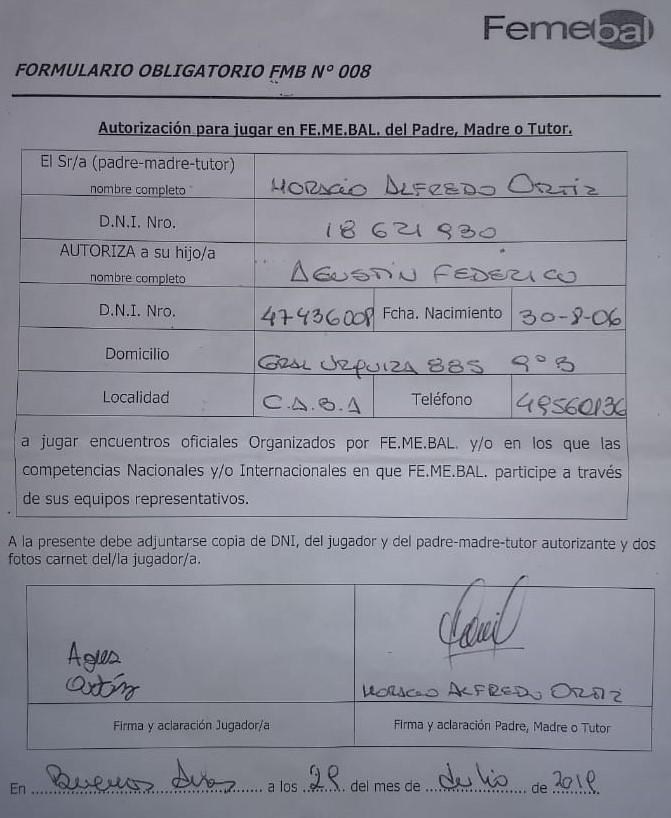 Femebal
FORMULARIO OBLIGATORIO FMB N° 008
Autorización para jugar en FE.ME.BAL. del Padre, Madre o Tutor.
El Sr/a (padre-madre-tutor)
nombre completo HORACIO ALFREDO ORTIZ
D.N.I. Nro. 18 621 930
AUTORIZA a su hijo/a
nombre completo AGUSTIN FEDERICO
D.N.I. Nro. 47436008 Fcha. Nacimiento 30-8-06
Domicilio GRAL URQUIZA 885 9° B
Localidad C.A.B.A Teléfono 49560136
a jugar encuentros oficiales Organizados por FE.ME.BAL. y/o en los que las
competencias Nacionales y/o Internacionales en que FE.ME.BAL. participe a través
de sus equipos representativos.
A la presente debe adjuntarse copia de DNI, del jugador y del padre-madre-tutor autorizante y dos
fotos carnet del/la jugador/a.
Ortiz
HORACIO ALFREDO ORTIZ
Firma y aclaración Jugador/a Firma y aclaración Padre, Madre o Tutor
En Buenos Aires a los 29 del mes de Julio de 2019.